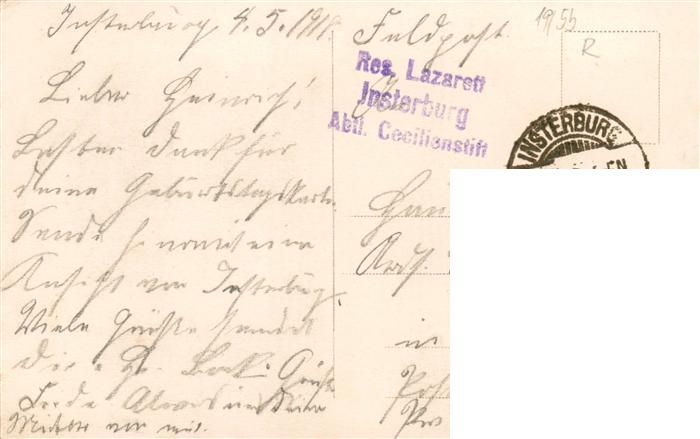 Insterburg, 4.5.191
Feldpost.
19/55
R
Res. Lazarett
Insterburg
Abtl. Cecilienstift
INSTERBURG
Lieber Heinrich!
Besten Dank für
deine Geburtstagskarte.
Sende hiermit eine
Ansicht von Insterburg.
Viele Grüße sendet
dir
Grüße
Mutter von mir.
in